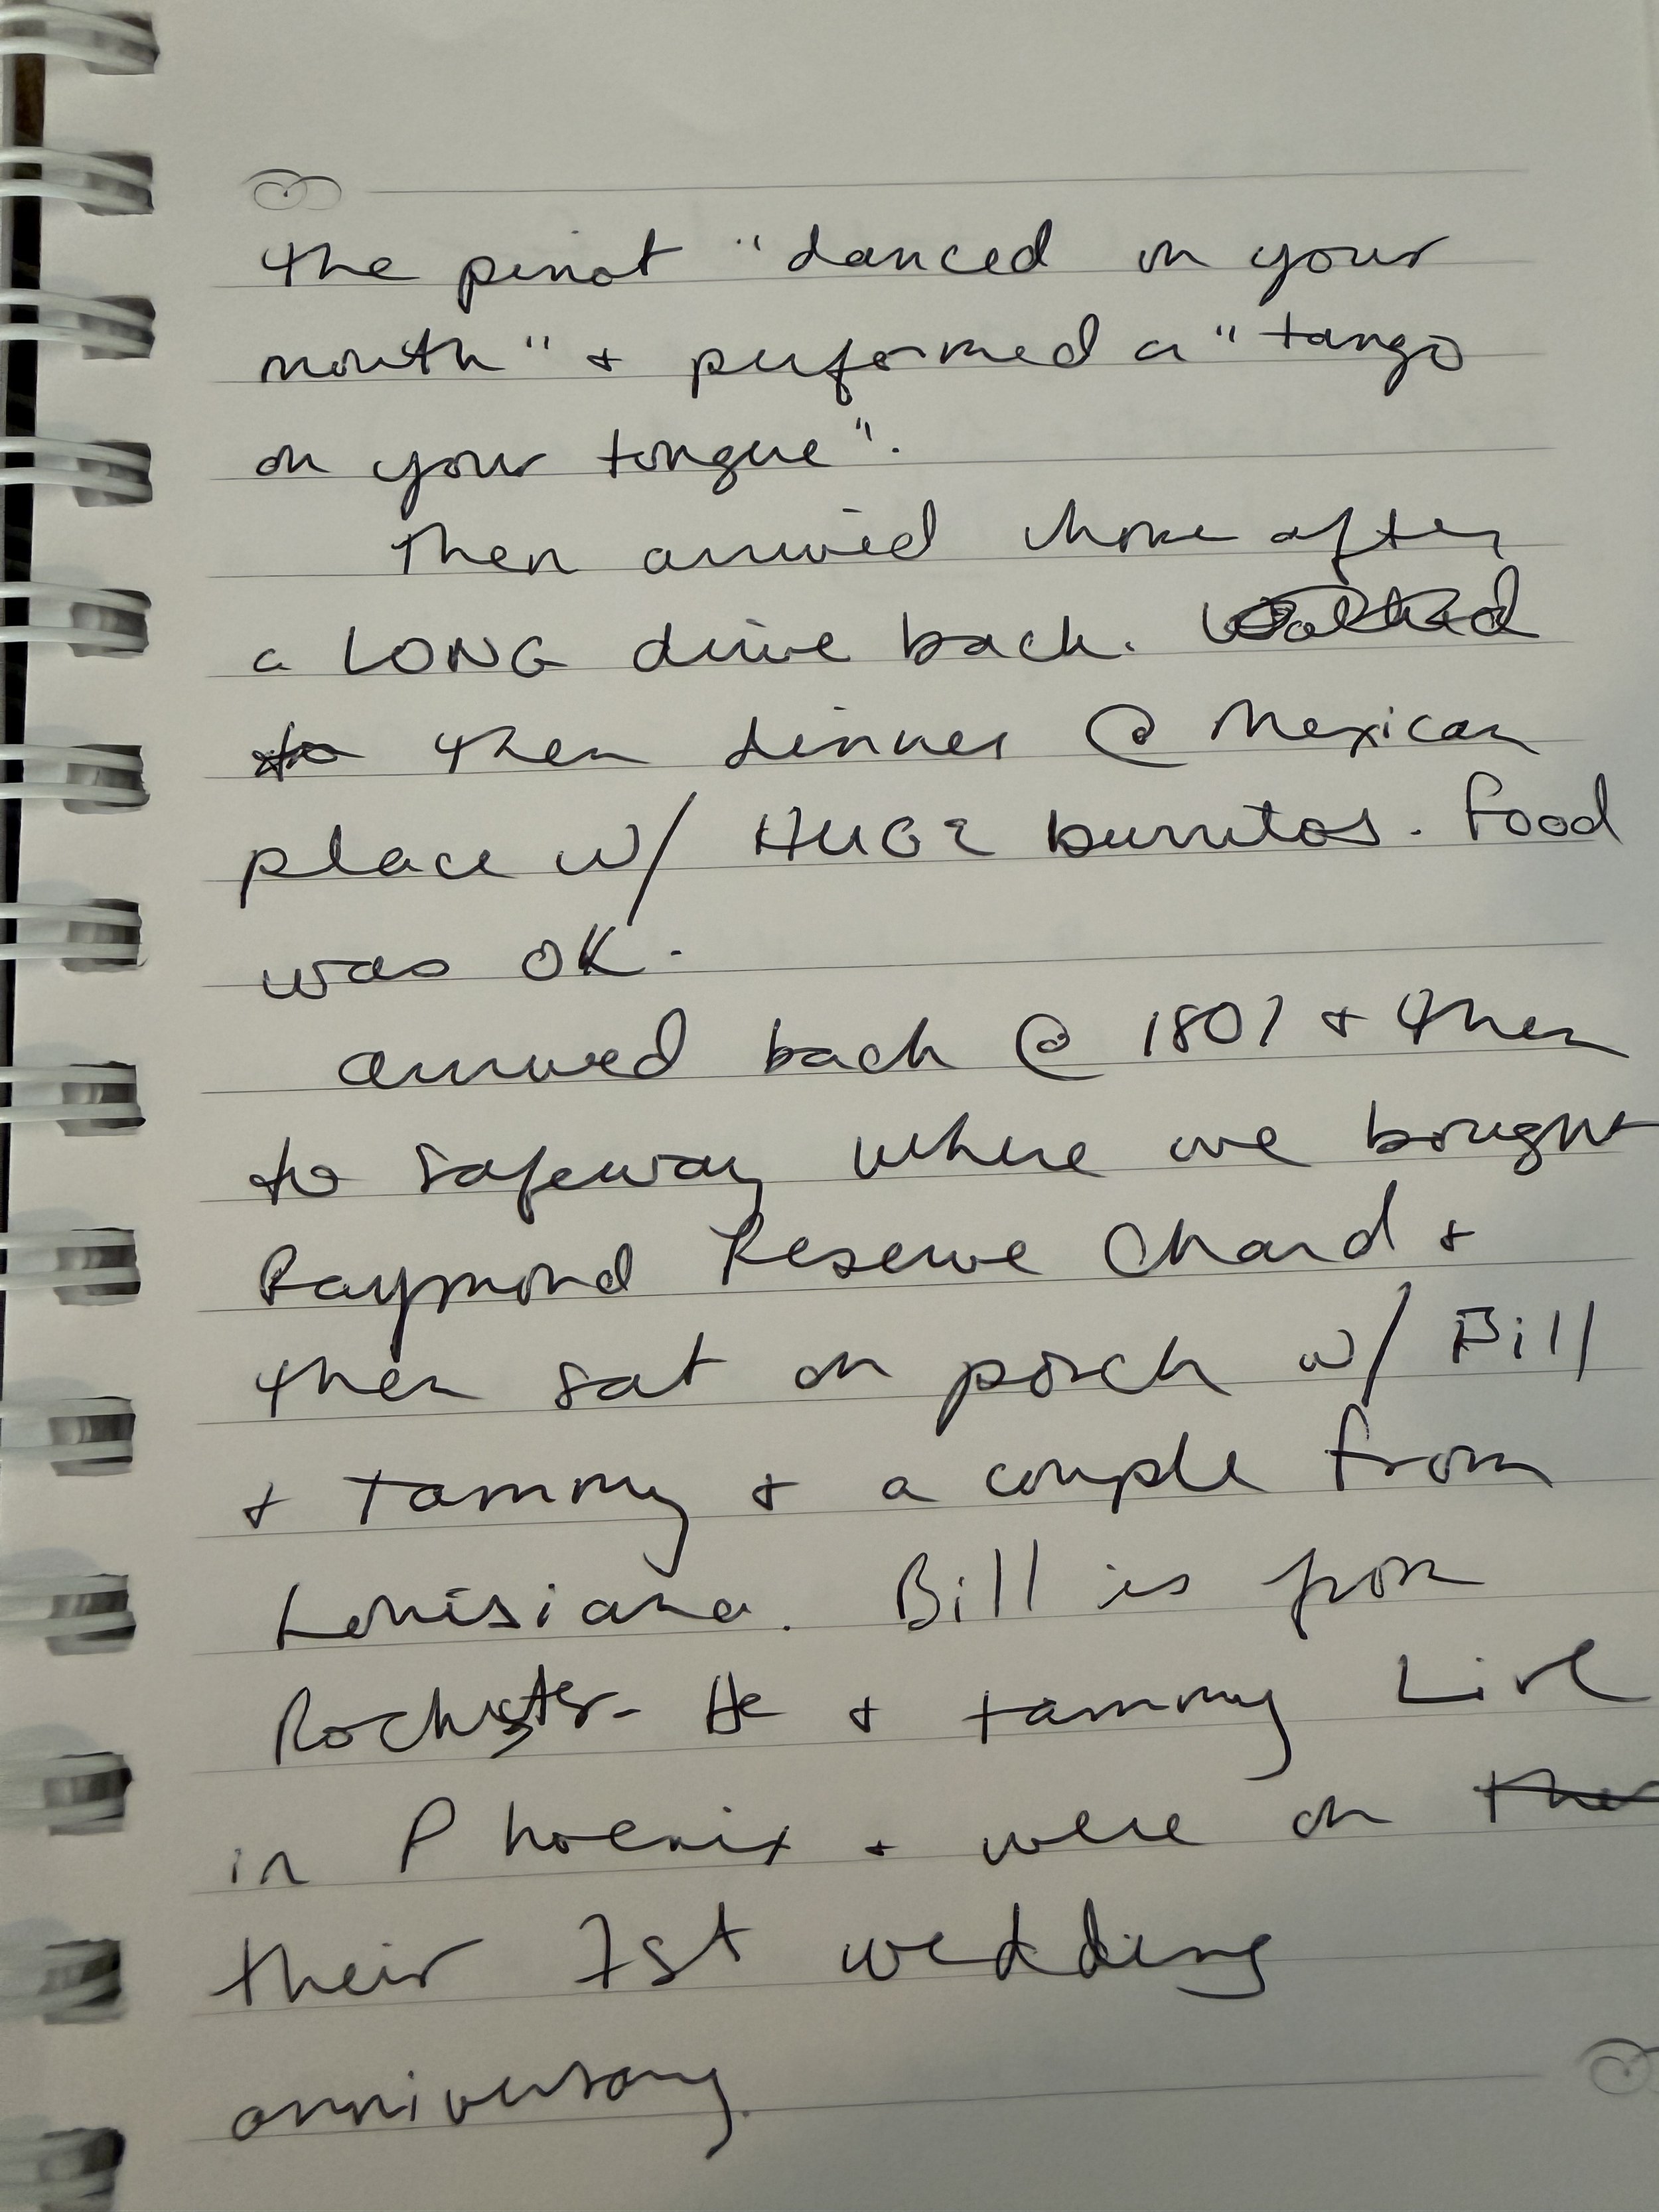 the pinot "danced in your
mouth" + performed a "tango
on your tongue".
Then arrived home after
a LONG drive back. Walked
to then dinner @ Mexican
place w/ HUGE burritos. Food
was OK.
arrived back @ 1801 + then
to Safeway where we bought
Raymond Reserve Chard +
then sat on porch w/ Bill
+ Tammy + a couple from
Louisiana. Bill is from
Rochester - He + Tammy Live
in Phoenix + were on the
their 1st wedding
anniversary.